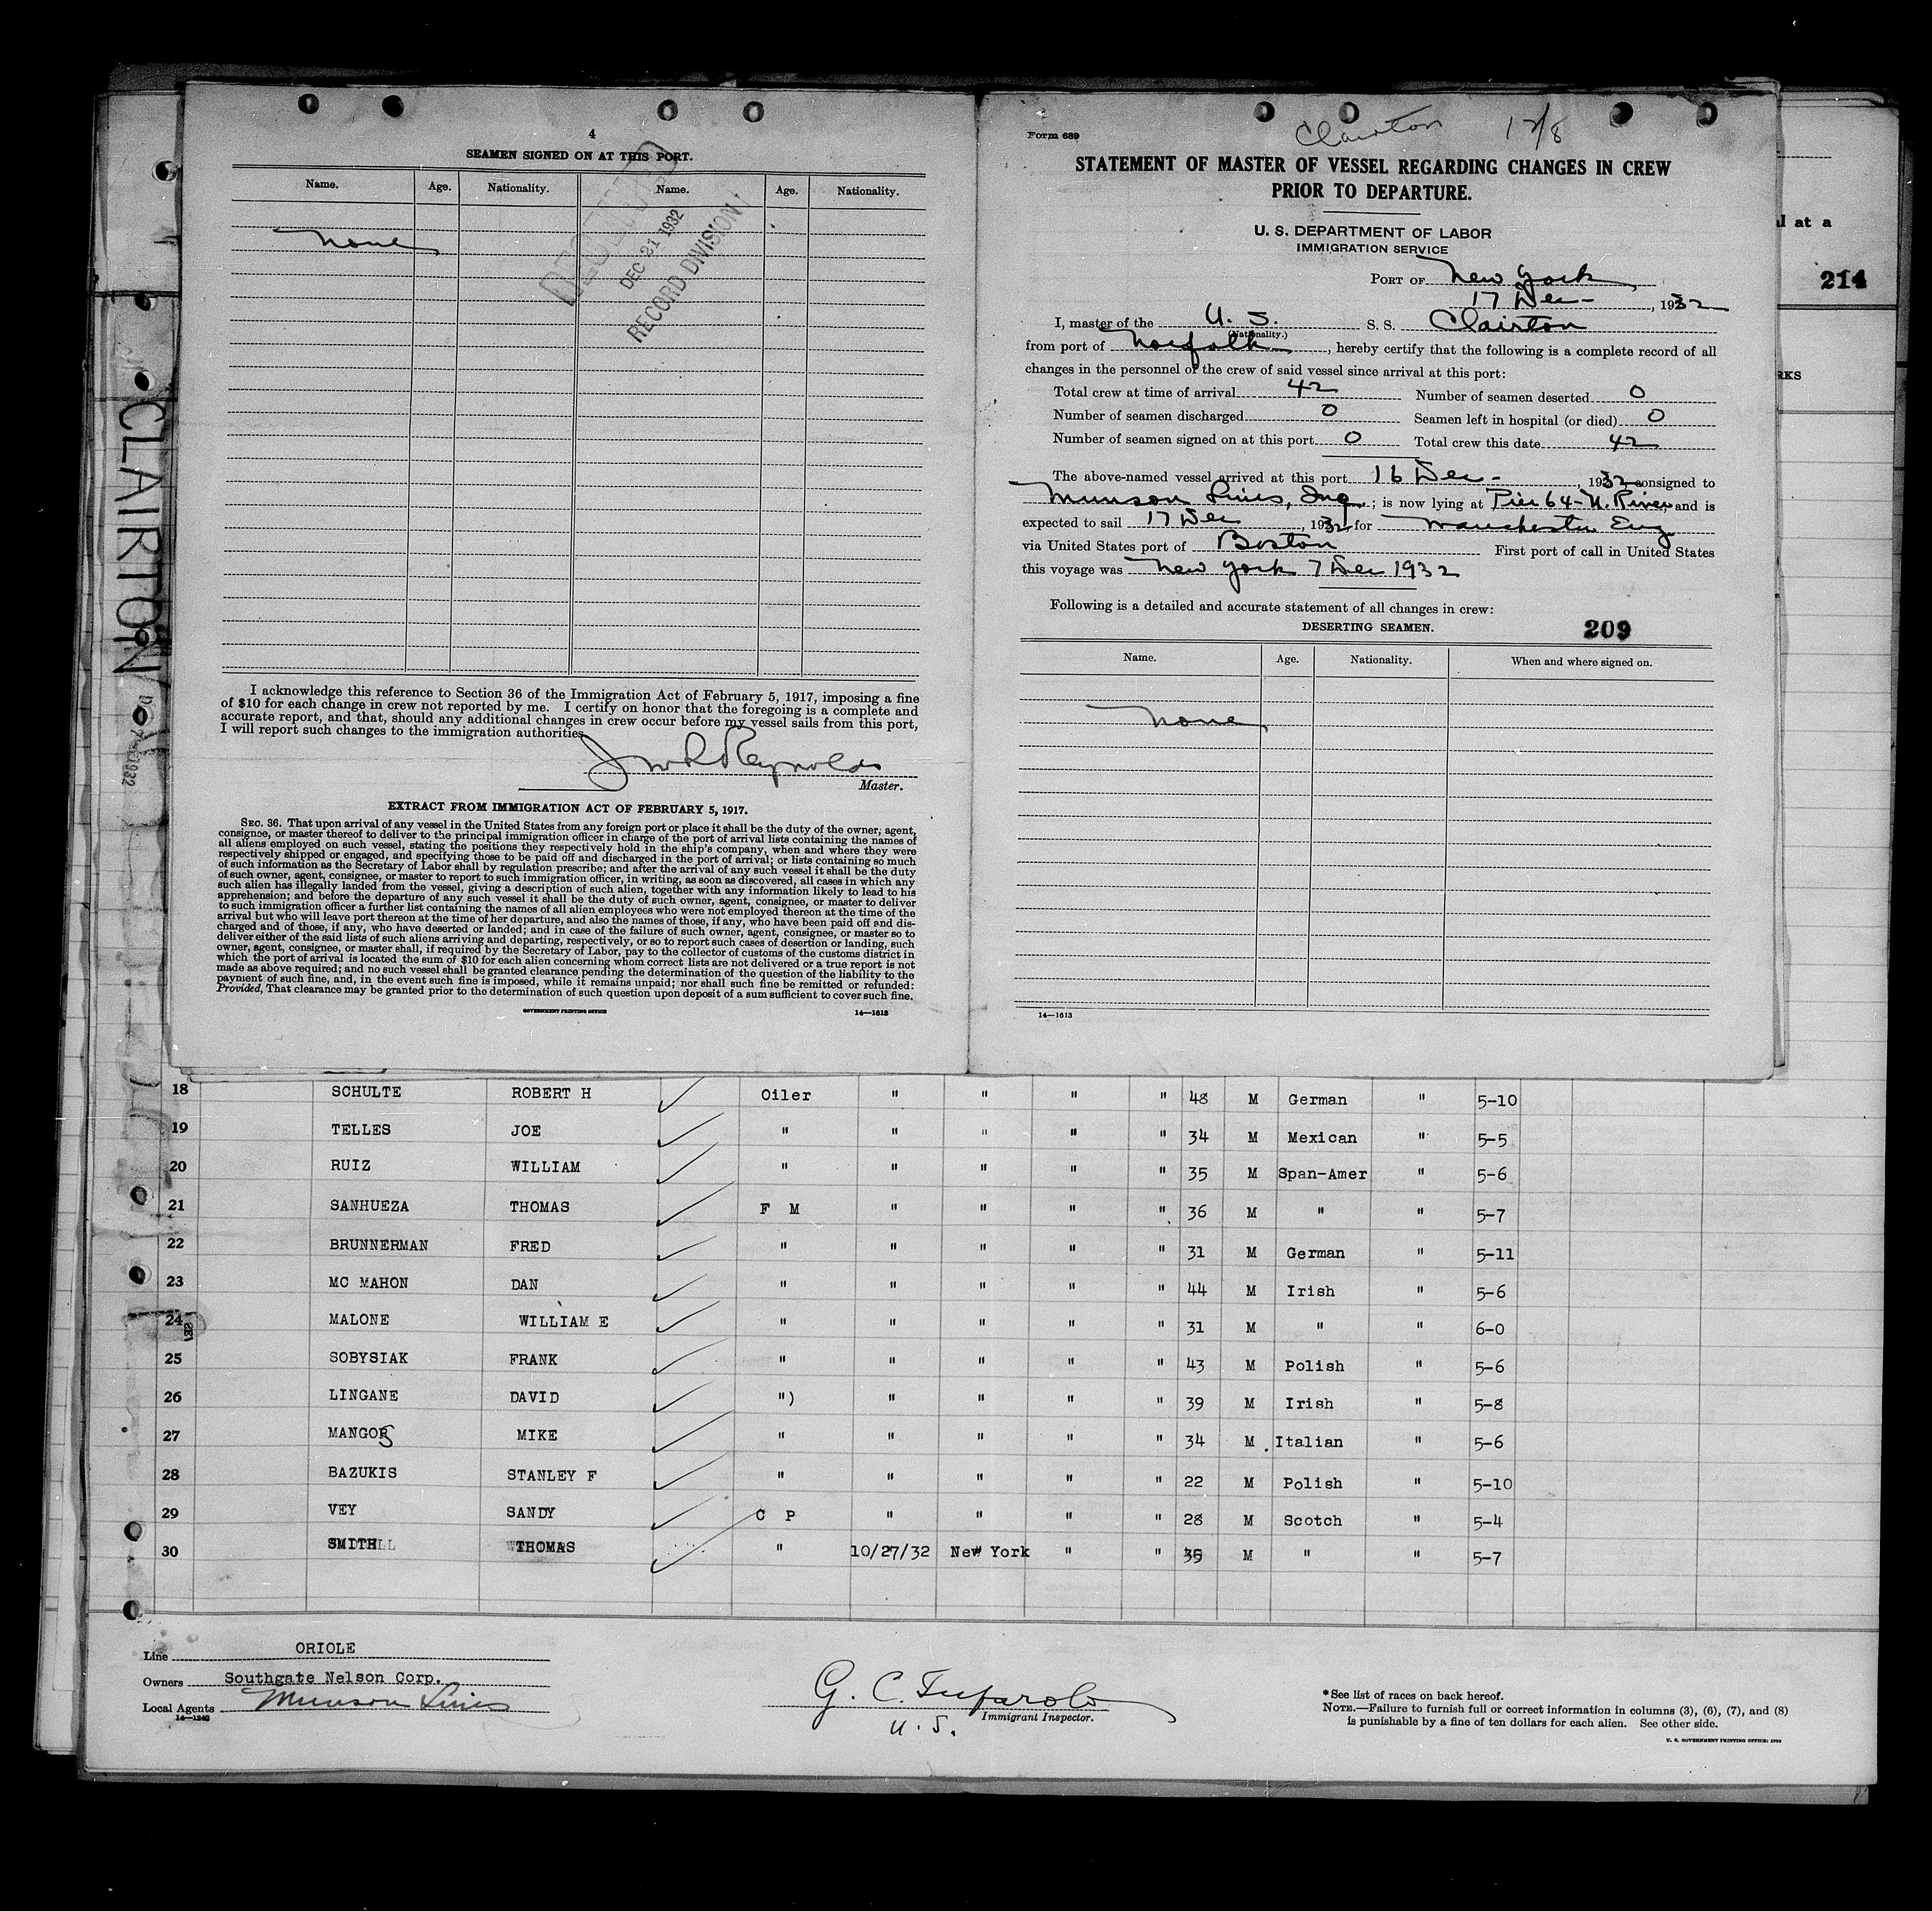 4
SEAMEN SIGNED ON AT THIS PORT.
Name. Age. Nationality. Name. Age. Nationality.
None
DEC 21 1932
RECORD DIVISION
I acknowledge this reference to Section 36 of the Immigration Act of February 5, 1917, imposing a fine
of $10 for each change in crew not reported by me. I certify on honor that the foregoing is a complete and
accurate report, and that, should any additional changes in crew occur before my vessel sails from this port,
I will report such changes to the immigration authorities.
Reynolds
Master.
EXTRACT FROM IMMIGRATION ACT OF FEBRUARY 5, 1917.
SEC. 36. That upon arrival of any vessel in the United States from any foreign port or place it shall be the duty of the owner, agent,
consignee, or master thereof to deliver to the principal immigration officer in charge of the port of arrival lists containing the names of
all aliens employed on such vessel, stating the positions they respectively hold in the ship's company, when and where they were
respectively shipped or engaged, and specifying those to be paid off and discharged in the port of arrival; or lists containing so much
of such information as the Secretary of Labor shall by regulation prescribe; and after the arrival of any such vessel it shall be the duty
of such owner, agent, consignee, or master to report to such immigration officer, in writing, as soon as discovered, all cases in which any
such alien has illegally landed from the vessel, giving a description of such alien, together with any information likely to lead to his
apprehension; and before the departure of any such vessel it shall be the duty of such owner, agent, consignee, or master to deliver
to such immigration officer a further list containing the names of all alien employees who were not employed thereon at the time of the
arrival but who will leave port thereon at the time of her departure, and also the names of those, if any, who have been paid off and dis-
charged and of those, if any, who have deserted or landed; and in case of the failure of such owner, agent, consignee, or master so to
deliver either of the said lists of such aliens arriving and departing, respectively, or so to report such cases of desertion or landing, such
owner, agent, consignee, or master shall, if required by the Secretary of Labor, pay to the collector of customs of the customs district in
which the port of arrival is located the sum of $10 for each alien concerning whom correct lists are not delivered or a true report is not
made as above required; and no such vessel shall be granted clearance pending the determination of the question of the liability to the
payment of such fine, and, in the event such fine is imposed, while it remains unpaid; nor shall such fine be remitted or refunded:
Provided, That clearance may be granted prior to the determination of such question upon deposit of a sum sufficient to cover such fine.
GOVERNMENT PRINTING OFFICE 14—1613
Form 689
Clairton 12/8
STATEMENT OF MASTER OF VESSEL REGARDING CHANGES IN CREW
PRIOR TO DEPARTURE.
U. S. DEPARTMENT OF LABOR
IMMIGRATION SERVICE
PORT OF New York
17 Dec -, 1932
I, master of the U. S. S. S. Clairton
(Nationality.)
from port of Norfolk, hereby certify that the following is a complete record of all
changes in the personnel of the crew of said vessel since arrival at this port:
Total crew at time of arrival 42 Number of seamen deserted 0
Number of seamen discharged 0 Seamen left in hospital (or died) 0
Number of seamen signed on at this port 0 Total crew this date 42
The above-named vessel arrived at this port 16 Dec -, 1932 consigned to
Munson Lines, Inc; is now lying at Pier 64-N. River and is
expected to sail 17 Dec, 1932 for Manchester Eng
via United States port of Boston First port of call in United States
this voyage was New York 7 Dec 1932
Following is a detailed and accurate statement of all changes in crew:
DESERTING SEAMEN. 209
Name. Age. Nationality. When and where signed on.
None
14—1613
l at a
214
RKS
CLAIRTON
1932
18 SCHULTE ROBERT H Oiler " " " " 48 M German " 5-10
19 TELLES JOE " " " " " 34 M Mexican " 5-5
20 RUIZ WILLIAM " " " " " 35 M Span-Amer " 5-6
21 SANHUEZA THOMAS F M " " " " 36 M " " 5-7
22 BRUNNERMAN FRED " " " " " 31 M German " 5-11
23 MC MAHON DAN " " " " " 44 M Irish " 5-6
24 MALONE WILLIAM E " " " " " 31 M " " 6-0
25 SOBYSIAK FRANK " " " " " 43 M Polish " 5-6
26 LINGANE DAVID ") " " " " 39 M Irish " 5-8
27 MANGOS MIKE " " " " " 34 M Italian " 5-6
28 BAZUKIS STANLEY F " " " " " 22 M Polish " 5-10
29 VEY SANDY C P " " " " 28 M Scotch " 5-4
30 SMITH THOMAS " 10/27/32 New York " " 35 M " " 5-7
Line ORIOLE
Owners Southgate Nelson Corp.
Local Agents Munson Lines
14—1240
G. C. Tufarolo
U. S. Immigrant Inspector.
* See list of races on back hereof.
NOTE.—Failure to furnish full or correct information in columns (3), (6), (7), and (8)
is punishable by a fine of ten dollars for each alien. See other side.
U. S. GOVERNMENT PRINTING OFFICE: